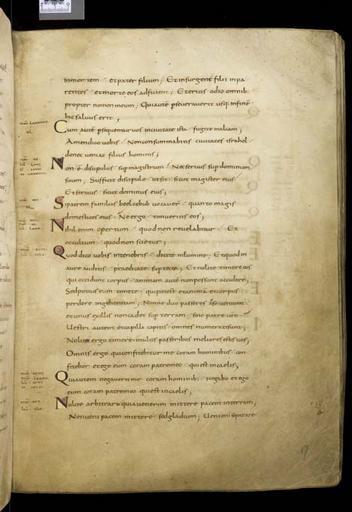 in mortem · et pater filium, Et insurgent filii in pa
rentes · et morte eos adficient, Et eritis odio omnib;
propter nomen meum, Qui autē perseveraverit usq; in finē
hic salvus erit,
Cum autē persequentur vos in civitate ista fugite in aliam,
Amen dico vobis · Non consummabitis civitates israhel
donec veniat filius hominis,
Non ē discipulus sup magistrum · Nec servus sup dominum
suum, Sufficit discipulo ut sit sicut magister eius
Et servus sicut dominus eius,
Si patrem familias beelzebub vocaver̄ · quanto magis
domesticos eius, Ne ergo timueritis eos,
Nihil enim opertum quod non revelabitur · Et
occultum quod non scietur,
Quod dico vobis in tenebris · dicite in lumine, Et quod in
aure auditis · praedicate sup tecta, Et nolite timere eos
qui occidunt corpus · animam autē non possunt occidere,
Sed potius eum timete · qui potest et animā et corpus
perdere in gehennam, Nonne duo passeres asse veneunt
et unus ex illis non cadet sup terram · sine patre vr̄o
Vestri autem et capilli capitis omnes numerati sunt,
Nolite ergo timere · multis passeribus meliores estis vos,
Omnis ergo qui confitebitur me coram hominibus · con
fitebor et ego eum coram patre meo · qui est in caelis,
Qui autem negaverit me coram hominib; · negabo et ego
eum coram patre meo · qui est in caelis,
Nolite arbitrari quia venerim mittere pacem in terram,
Non veni pacem mittere · sed gladium, Veni enim separare